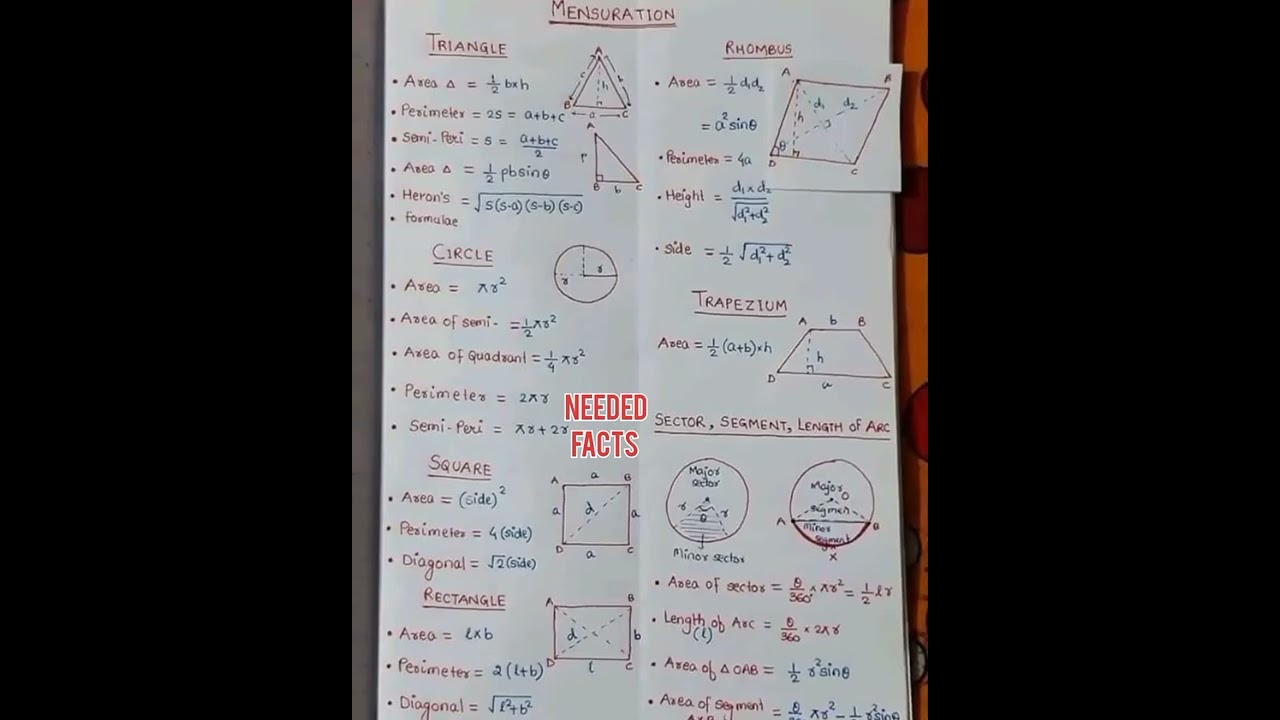 MENSURATION
TRIANGLE
• Area Δ = 1/2 b×h
• Perimeter = 2S = a+b+c
• Semi-Peri = s = (a+b+c)/2
• Area Δ = 1/2 pb sinθ
• Heron's = √(S(s-a)(s-b)(s-c))
• formulae
A
c
b
h
B
a
C
A
P
B
b
C
CIRCLE
• Area = πr²
• Area of semi- = 1/2 πr²
• Area of Quadrant = 1/4 πr²
• Perimeter = 2πr
• Semi-Peri = πr + 2r
r
r
SQUARE
• Area = (side)²
• Perimeter = 4(side)
• Diagonal = √2(side)
A
a
B
a
d
a
D
a
C
RECTANGLE
• Area = l×b
• Perimeter = 2(l+b)
• Diagonal = √(l²+b²)
A
B
d
b
D
l
C
NEEDED
FACTS
RHOMBUS
• Area = 1/2 d₁d₂
= a² sinθ
• Perimeter = 4a
• Height = (d₁×d₂)/√(d₁²+d₂²)
• side = 1/2 √(d₁²+d₂²)
A
B
d₁
d₂
h
θ
D
C
TRAPEZIUM
Area = 1/2 (a+b)×h
A
b
B
h
D
a
C
SECTOR, SEGMENT, LENGTH of ARC
Major
sector
r
θ
r
Minor sector
Major
O
segmen
A
B
Minor
segment
X
• Area of sector = θ/360° × πr² = 1/2 lr
• Length of Arc = θ/360 × 2πr
(l)
• Area of Δ OAB = 1/2 r² sinθ
• Area of segment = πr² − 1/2 r² sinθ